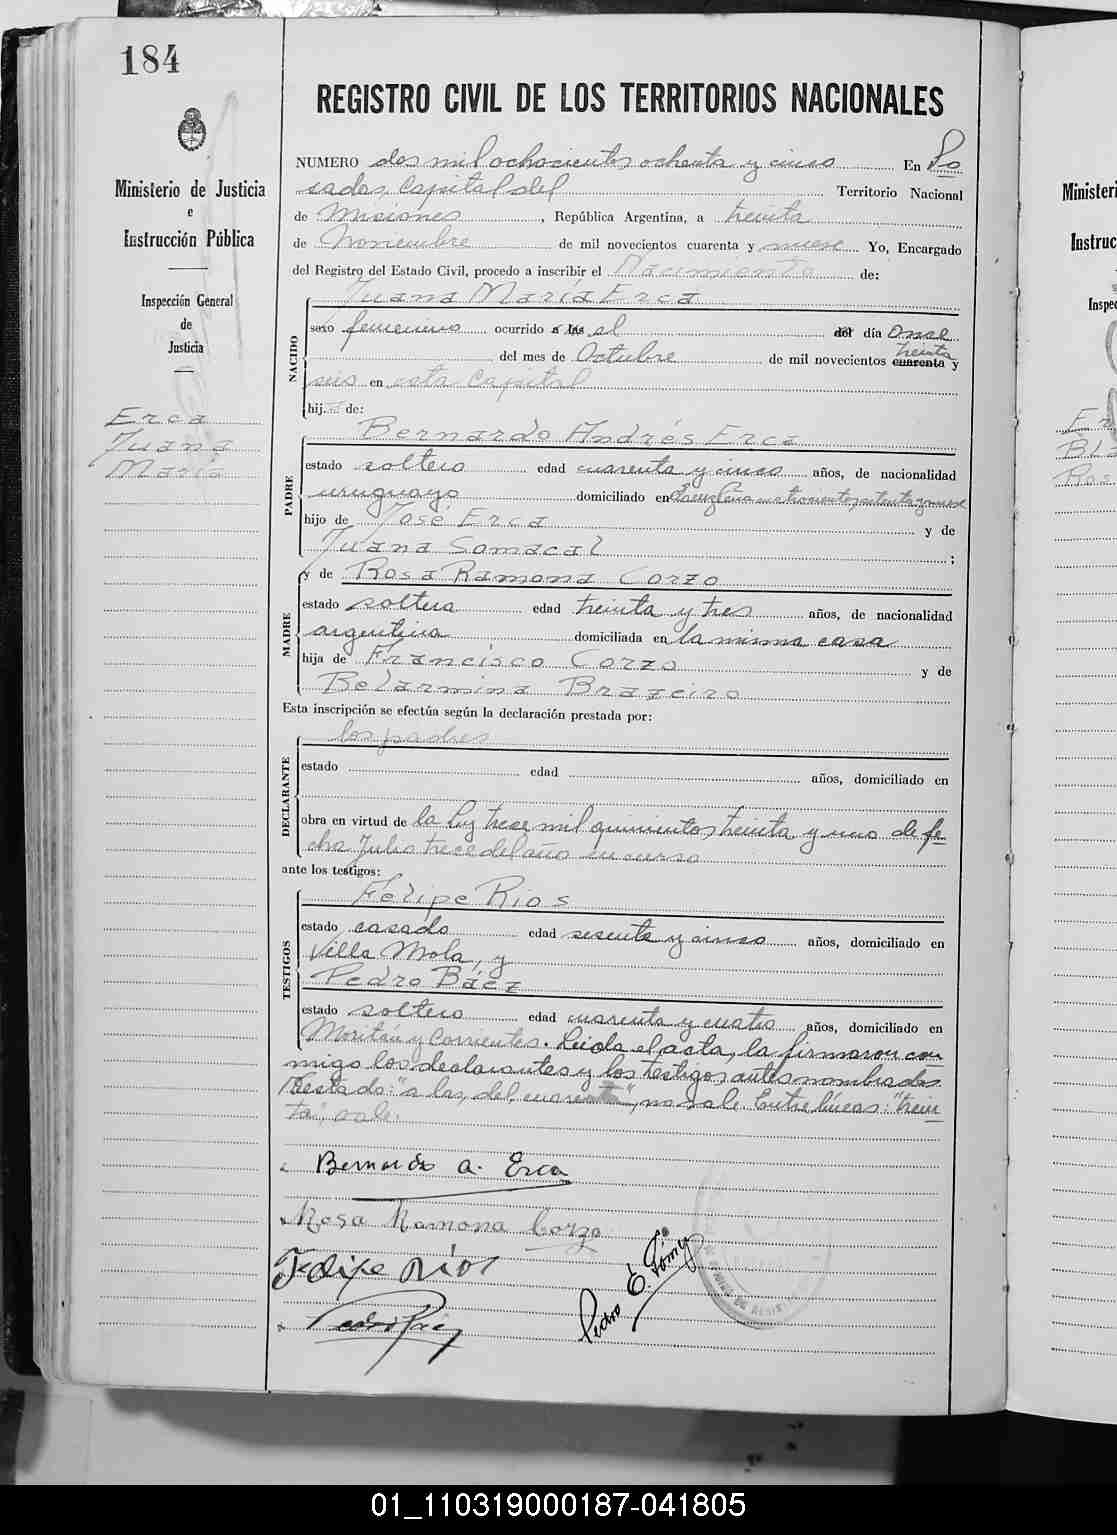 184
REGISTRO CIVIL DE LOS TERRITORIOS NACIONALES
Ministerio de Justicia
e
Instrucción Pública
Inspección General
de
Justicia
Erca
Juana
María
NUMERO dos mil ochocientos ochenta y cinco En Po
sadas, Capital del Territorio Nacional
de Misiones, República Argentina, a treinta
de Noviembre de mil novecientos cuarenta y nueve Yo, Encargado
del Registro del Estado Civil, procedo a inscribir el Nacimiento de:
Juana María Erca
NACIDO
sexo femenino ocurrido a las el del día once
del mes de Octubre de mil novecientos cuarenta y
treinta
seis en esta Capital
hij de:
Bernardo Andrés Erca
PADRE
estado soltero edad cuarenta y cinco años, de nacionalidad
uruguayo domiciliado en
hijo de José Erca y de
Juana Somacal ;
y de Rosa Ramona Corzo
MADRE
estado soltera edad treinta y tres años, de nacionalidad
argentina domiciliada en la misma casa
hija de Francisco Corzo y de
Belarmina Brazeiro
Esta inscripción se efectúa según la declaración prestada por:
los padres
DECLARANTE
estado edad años, domiciliado en
obra en virtud de la Ley trece mil quinientos treinta y uno de fe-
cha Julio trece del año en curso
ante los testigos:
Felipe Rios
TESTIGOS
estado casado edad sesenta y cinco años, domiciliado en
Villa Mola, y
Pedro Báez
estado soltero edad cuarenta y cuatro años, domiciliado en
y Corrientes. Leida el acta, la firmaron con
migo los declarantes y los testigos antes nombrados.
Testado: "a las, del, cuarenta", no vale. Entre líneas: "trein
ta", vale.
Bernardo A. Erca
Rosa Ramona Corzo
Felipe Rios
Pedro E.
Ministeri
Instruc
Inspec
01_110319000187-041805